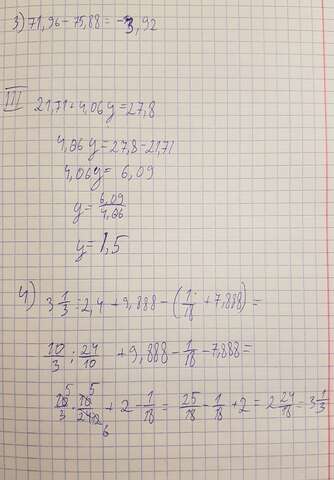 3) 71,96 - 75,88 = -3,92
III
21,71 + 4,06y = 27,8
4,06y = 27,8 - 21,71
4,06y = 6,09
y = 6,09/4,06
y = 1,5
4) 3 1/3 : 2,4 + 9,888 - (1/18 + 7,888) =
10/3 : 24/10 + 9,888 - 1/18 - 7,888 =
10/3 · 10/24 + 2 - 1/18 = 25/18 - 1/18 + 2 = 2 24/18 = 3 1/3